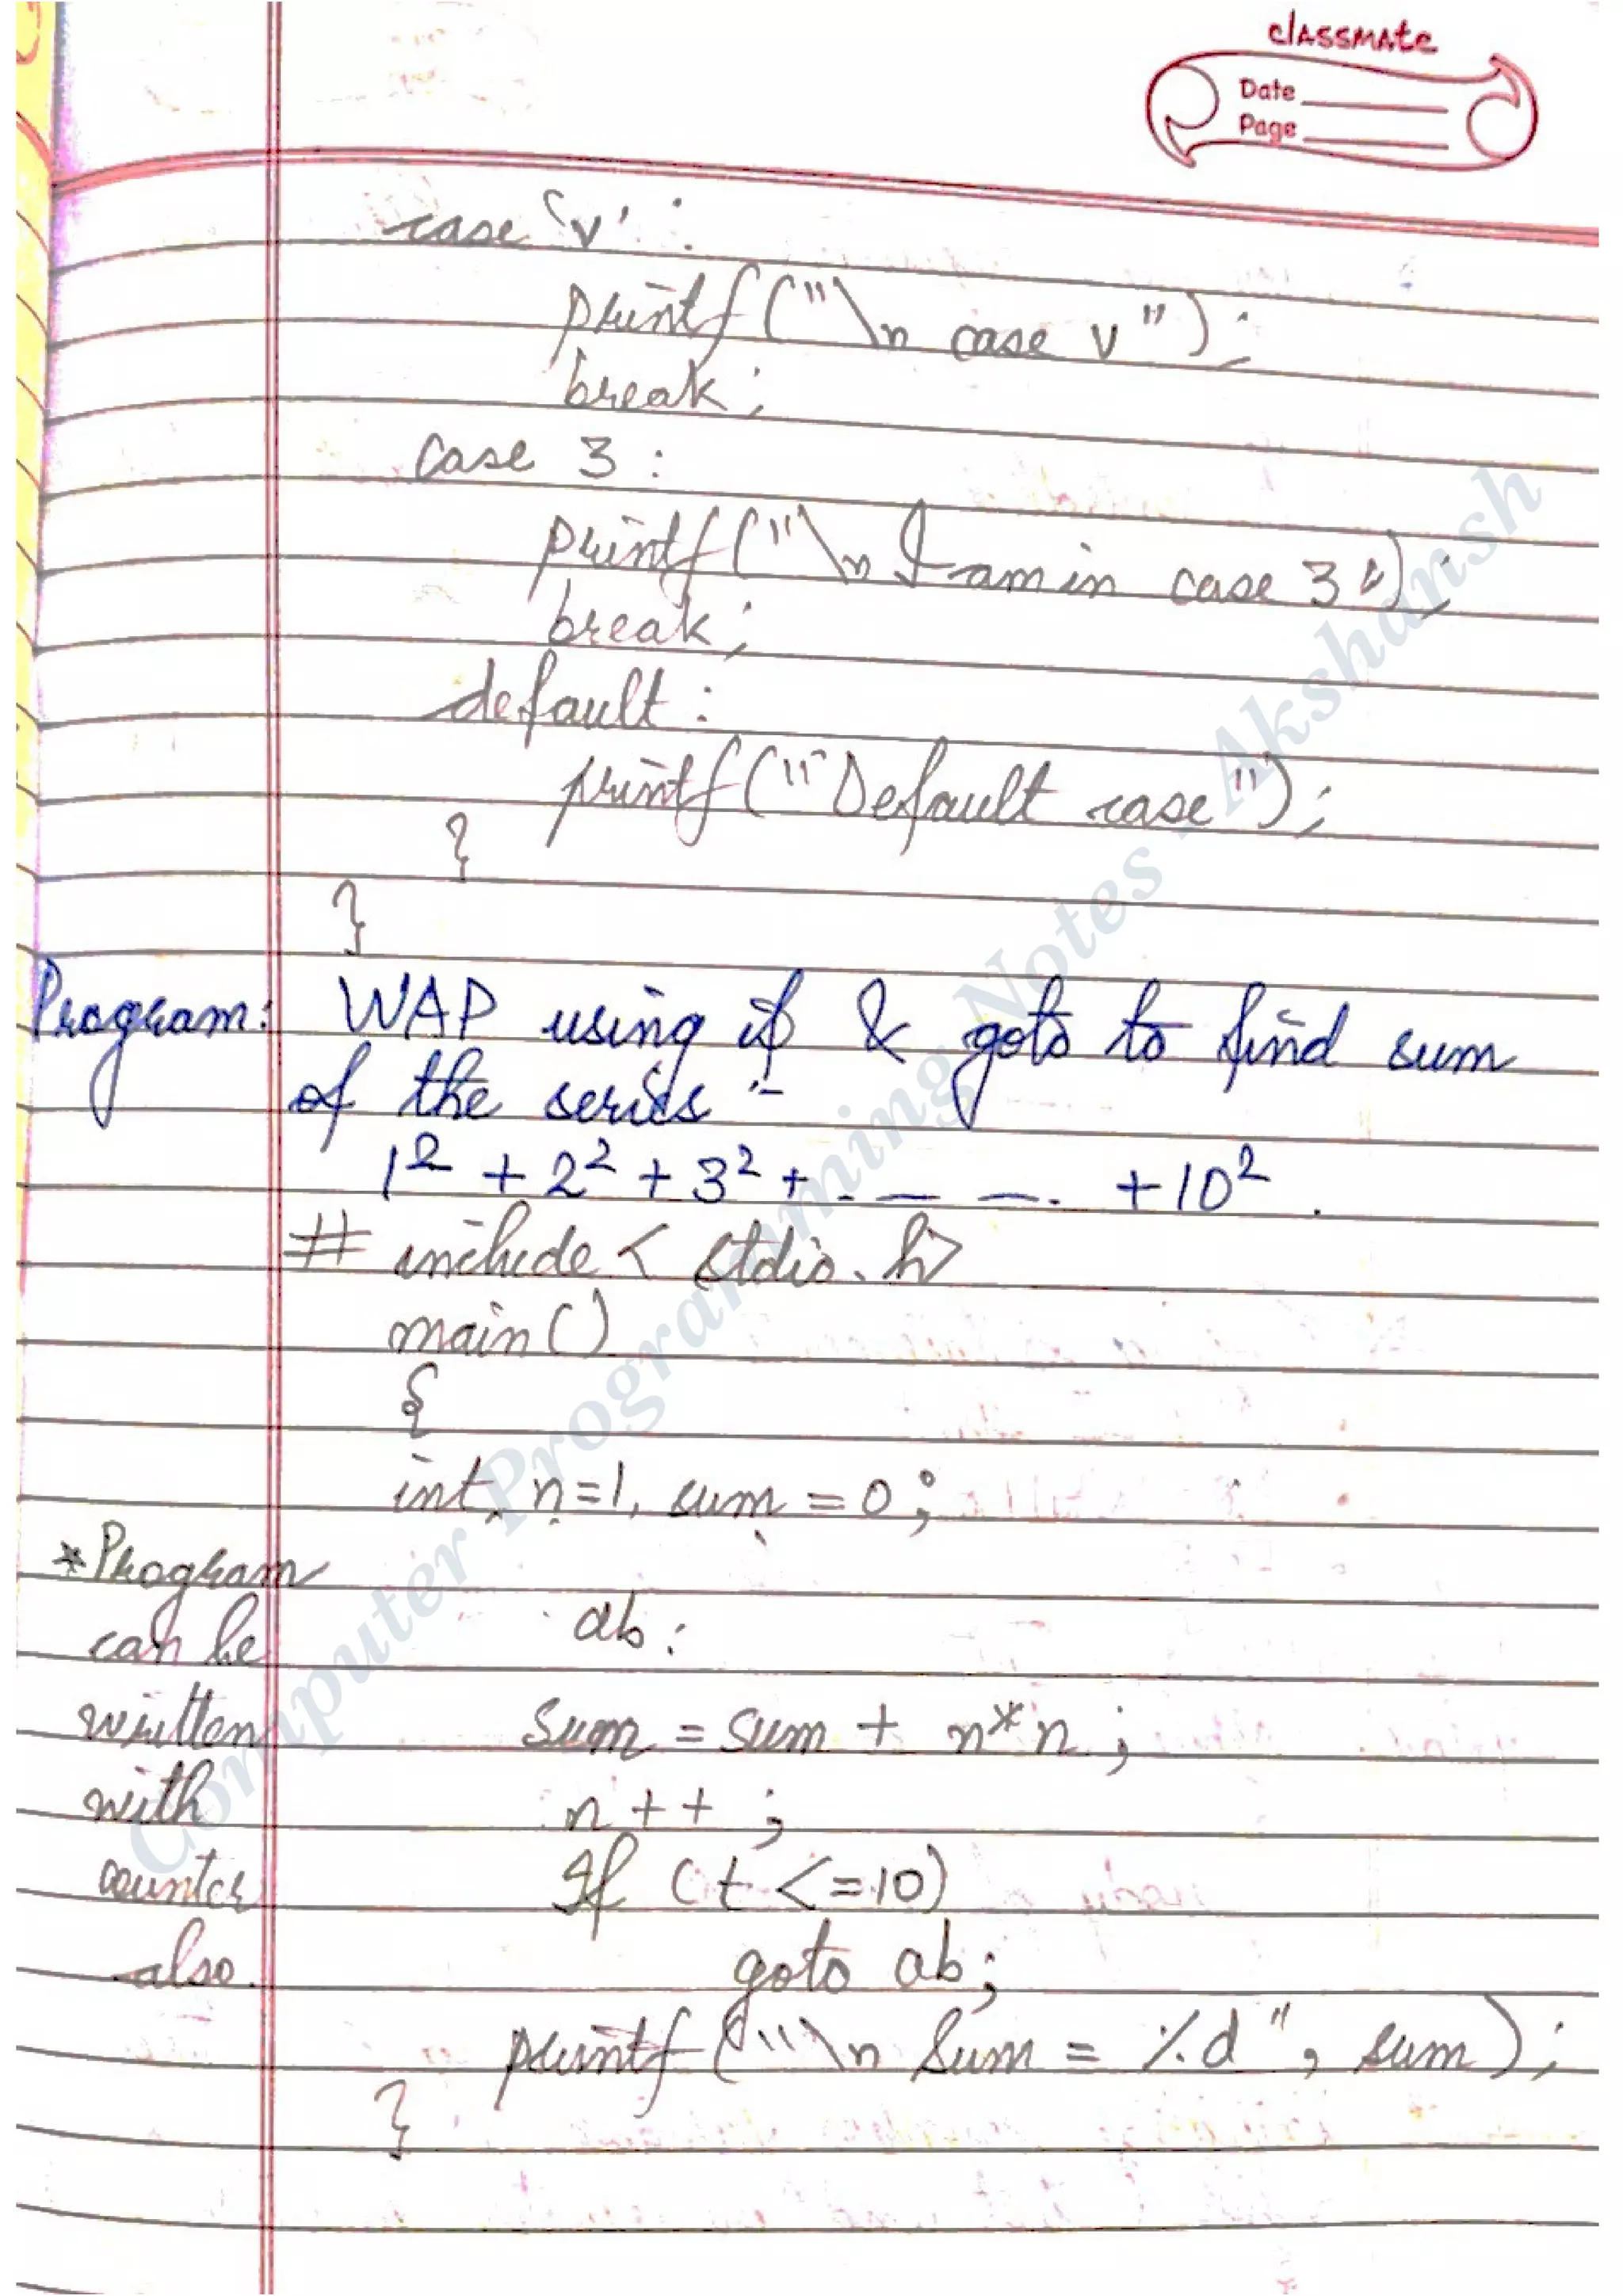 classmate
Date
Page
case 'v' :
printf("\n case v");
break;
case 3 :
printf("\n I am in case 3");
break;
default :
printf("Default case");
}
}
Program: WAP using if & goto to find sum
of the series :-
1² + 2² + 3² + . — — . + 10² .
# include < stdio.h>
main()
{
int n=1, sum = 0;
*Program
can be
written
with
counter
also.
ab:
sum = sum + n*n ;
n++ ;
If (t <=10)
goto ab;
printf("\n Sum = %d", sum);
}
Computer Programming Notes - Akshansh